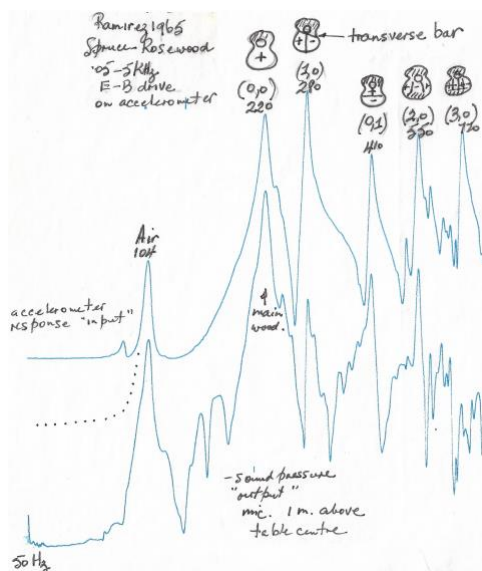 Ramirez 1965
Spruce-Rosewood
.05-5KHz
E-B drive
on accelerometer
transverse bar
+
+ -
(0,0)
220
(1,0)
290
+
-
(0,1)
410
(2,0)
550
(3,0)
Air
104
accelerometer
response "input"
main
wood.
- sound pressure
"output"
mic. 1 m. above
table centre
50 Hz